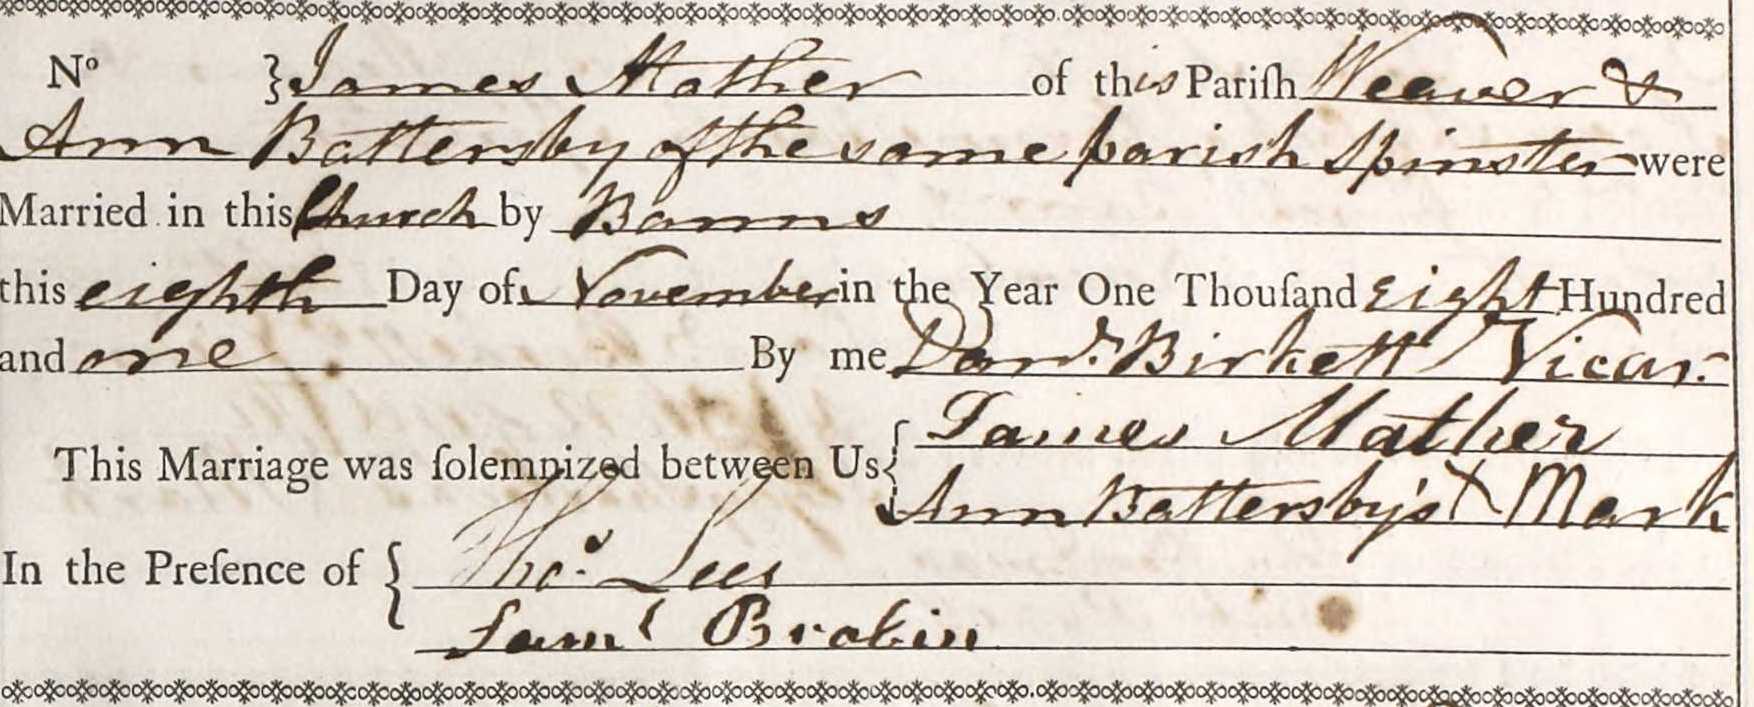 No } James Mather of this Pariſh Weaver &
Ann Battersby of the same parish Spinster were
Married in this Church by Banns
this eighth Day of November in the Year One Thouſand eight Hundred
and one By me Dan.l Birkett Vicar.
This Marriage was ſolemnized between Us { James Mather
Ann Battersby's X Mark
In the Preſence of { Tho.s Lees
Sam.l Brabin